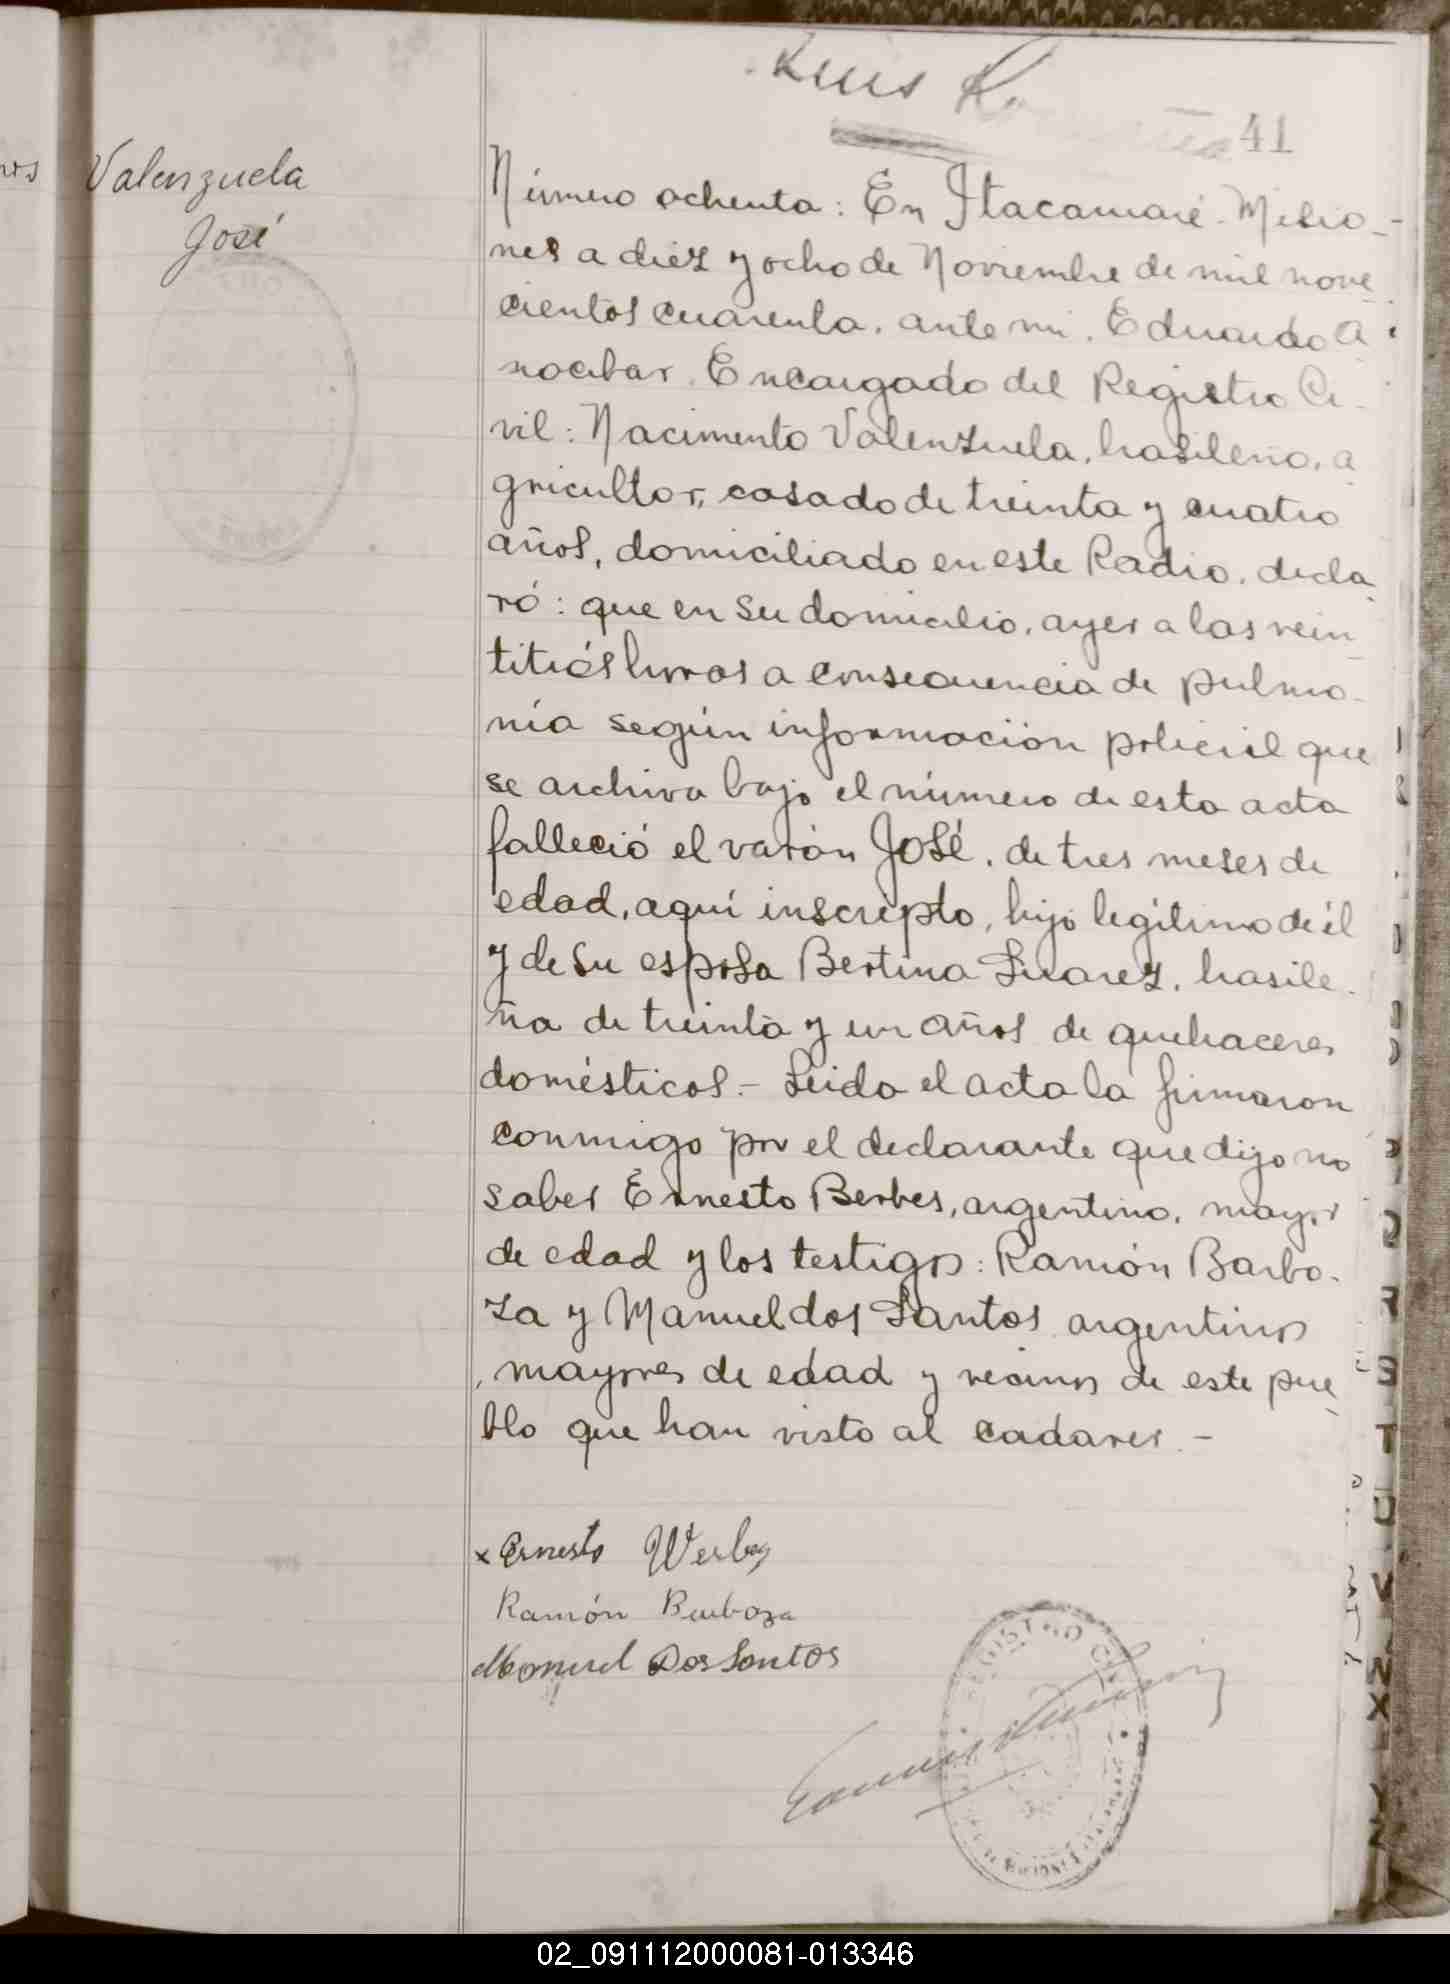 Luis
41
Valenzuela
José
Número ochenta: En Itacaruaré - Misio-
nes a diez y ocho de Noviembre de mil nove-
cientos cuarenta, ante mi, Eduardo A
nocibar, Encargado del Registro Ci-
vil: Nacimento Valenzuela, brasileño, a
gricultor, casado de treinta y cuatro
años, domiciliado en este Radio, decla-
ró: que en su domicilio, ayer a las vein-
titrés horas a consecuencia de pulmo-
nía según información policial que
se archiva bajo el número de esta acta
falleció el varón José, de tres meses de
edad, aquí inscripto, hijo legítimo de él
y de su esposa Bertina Suarez, brasile-
ña de treinta y un años de quehaceres
domésticos.- Leida el acta la firmaron
conmigo por el declarante que dijo no
saber Ernesto Berbes, argentino, mayor
de edad y los testigos: Ramón Barbo-
za y Manuel dos Santos argentinos
, mayores de edad y vecinos de este pue-
blo que han visto al cadaver.-
x Ernesto Werbes
Ramón Barboza
Manuel Dos Santos
REGISTRO CIVIL
R
S
T
U
V
W
X
Y
Z
02_091112000081-013346